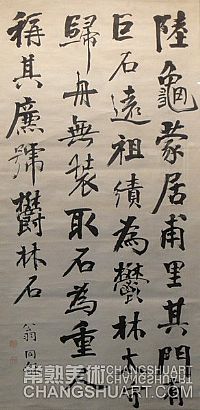 陸龜蒙居甫里其門有
巨石遠祖績為鬱林太守
歸舟無裝取石為重人
稱其廉號鬱林石
翁同龢
常熟美術
CHANGSHUART.COM